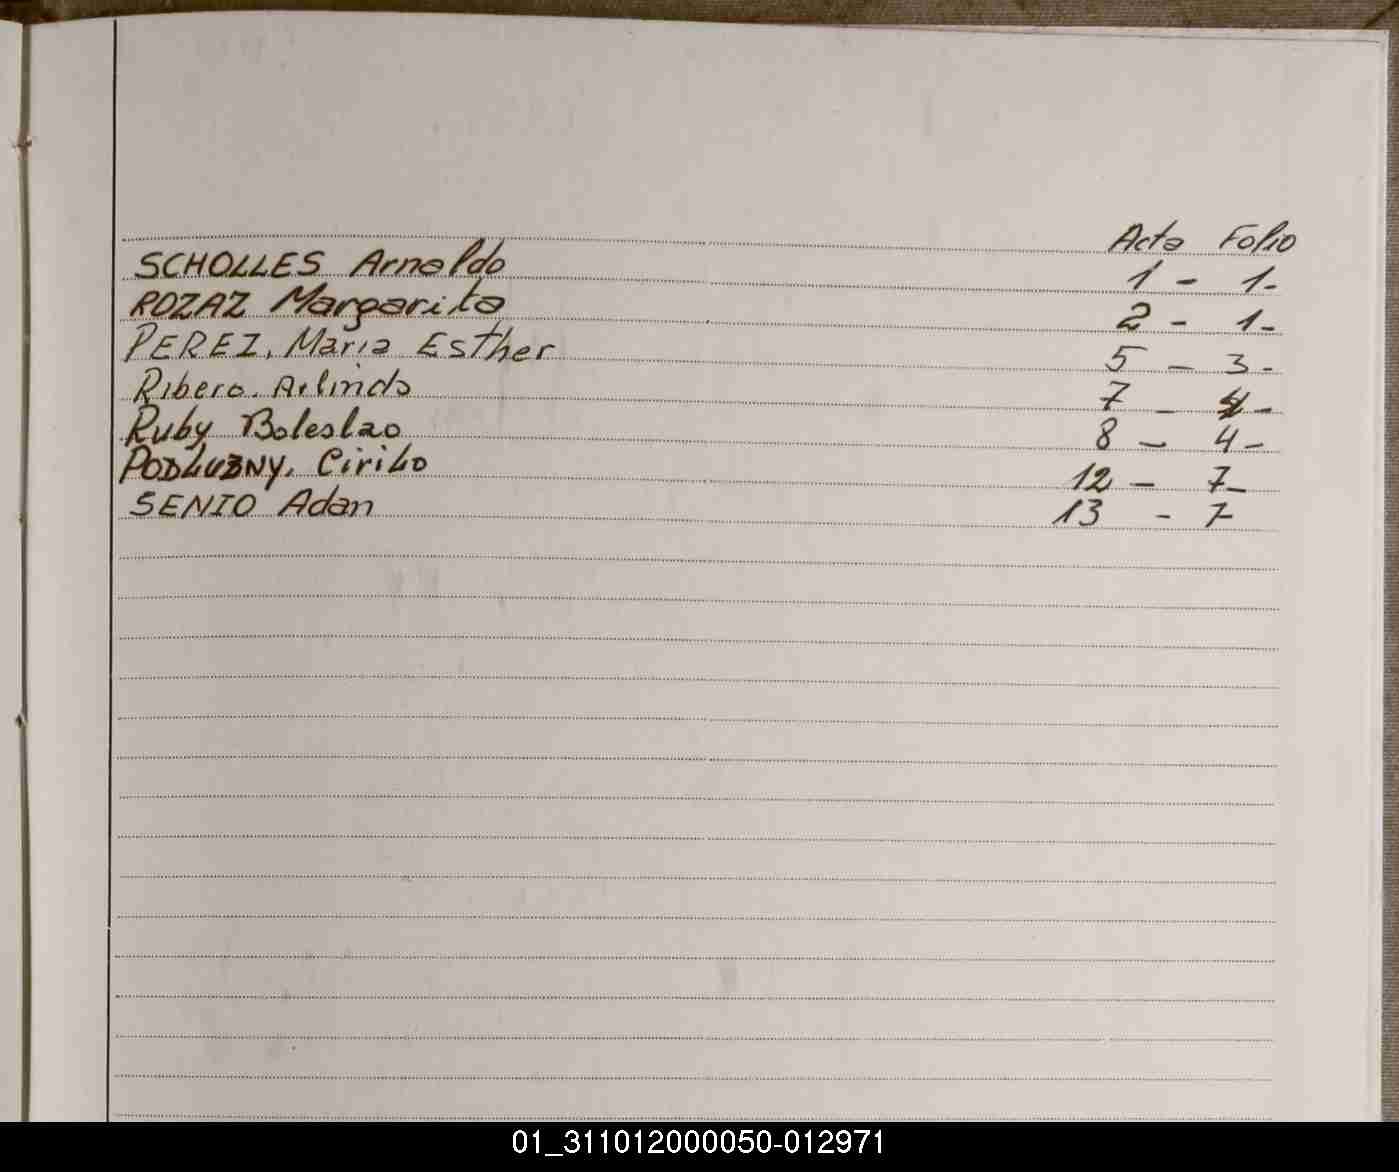 Acta Folio
SCHOLLES Arnaldo 1 - 1-
ROZAZ Margarita 2 - 1-
PEREZ, Maria Esther 5 - 3-
Ribero. Arlindo 7 - 4-
Ruby Boleslao 8 - 4-
PODLUZNY, Cirilo 12 - 7-
SENIO Adan 13 - 7
01_311012000050-012971